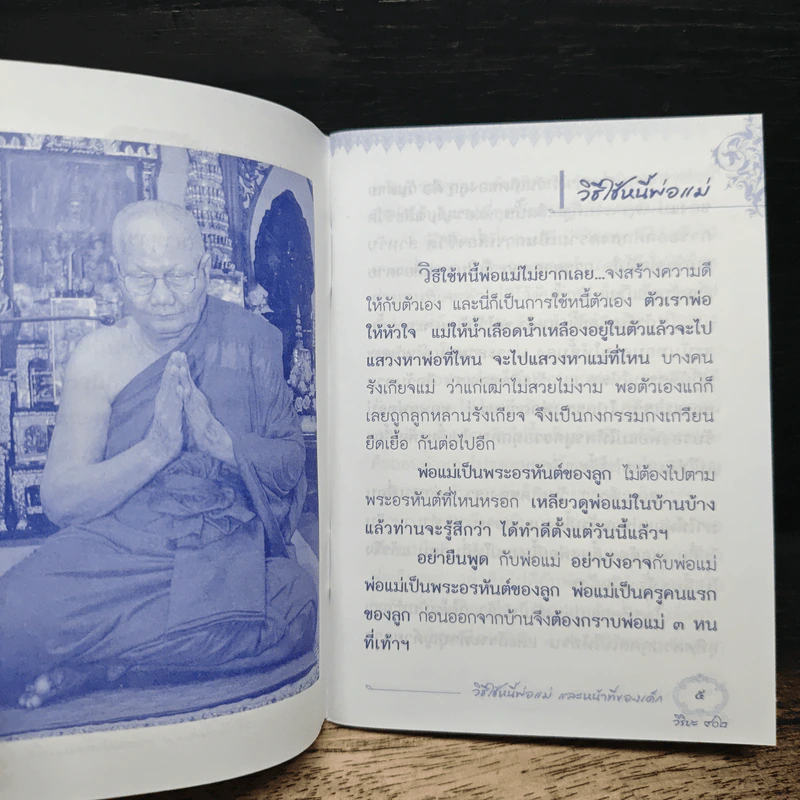 วิธีใช้หนี้พ่อแม่
วิธีใช้หนี้พ่อแม่ไม่ยากเลย...จงสร้างความดี
ให้กับตัวเอง และนี่ก็เป็นการใช้หนี้ตัวเอง ตัวเราพ่อ
ให้หัวใจ แม่ให้น้ำเลือดน้ำเหลืองอยู่ในตัวแล้วจะไป
แสวงหาพ่อที่ไหน จะไปแสวงหาแม่ที่ไหน บางคน
รังเกียจแม่ ว่าแก่เฒ่าไม่สวยไม่งาม พอตัวเองแก่ก็
เลยถูกลูกหลานรังเกียจ จึงเป็นกงกรรมกงเกวียน
ยืดเยื้อ กันต่อไปอีก
พ่อแม่เป็นพระอรหันต์ของลูก ไม่ต้องไปตาม
พระอรหันต์ที่ไหนหรอก เหลียวดูพ่อแม่ในบ้านบ้าง
แล้วท่านจะรู้สึกว่า ได้ทำดีตั้งแต่วันนี้แล้วฯ
อย่ายืนพูด กับพ่อแม่ อย่าบังอาจกับพ่อแม่
พ่อแม่เป็นพระอรหันต์ของลูก พ่อแม่เป็นครูคนแรก
ของลูก ก่อนออกจากบ้านจึงต้องกราบพ่อแม่ ๓ หน
ที่เท้าฯ
วิธีใช้หนี้พ่อแม่ และหน้าที่ของเด็ก
๕
วิริยะ